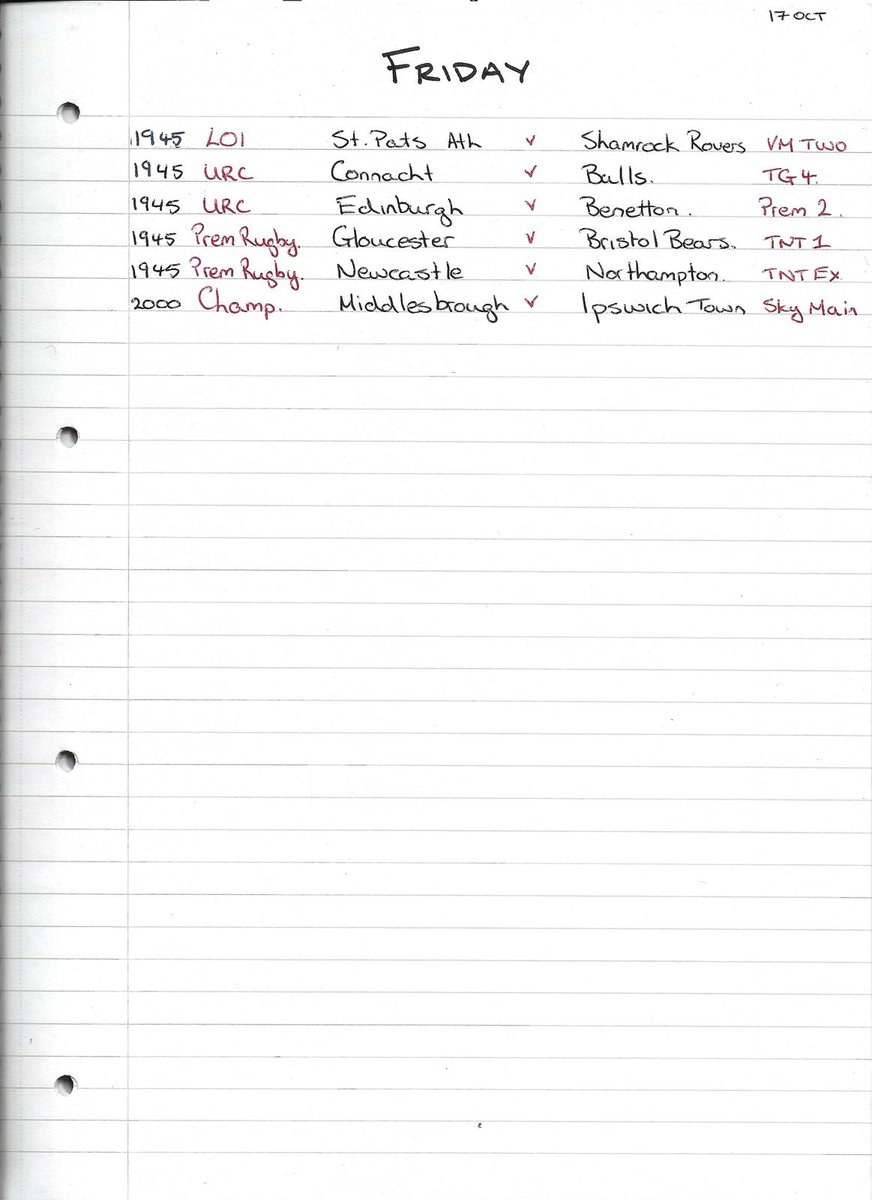 17 OCT
FRIDAY
1945 LOI St. Pats Ath v Shamrock Rovers VM TWO
1945 URC Connacht v Bulls. TG4.
1945 URC Edinburgh v Benetton. Prem 2.
1945 Prem Rugby. Gloucester v Bristol Bears. TNT 1
1945 Prem Rugby. Newcastle v Northampton. TNT Ex
2000 Champ. Middlesbrough v Ipswich Town Sky Main